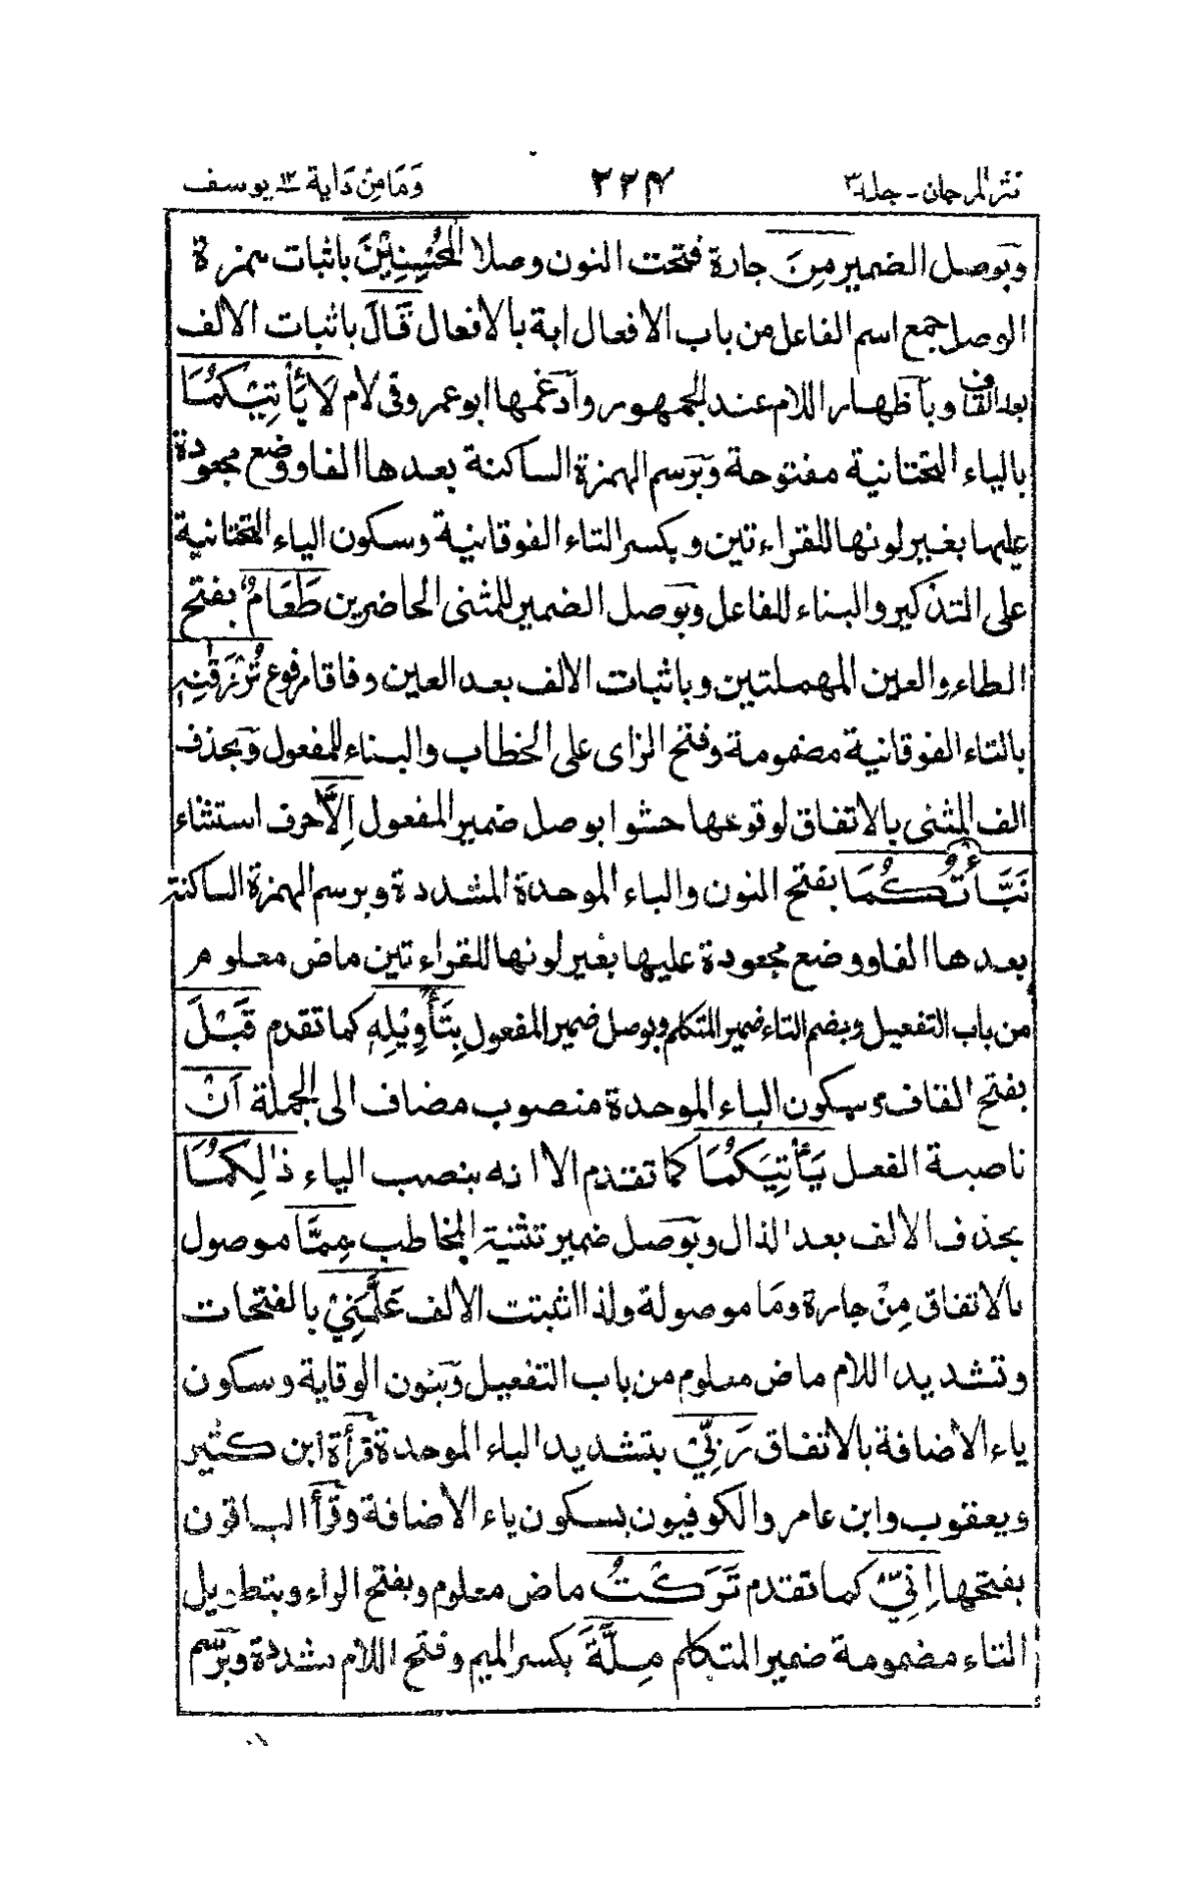 نثر المرجان - جلد ٣ ٢٢٤ وَمَا مِنْ دَابة ١٢ يوسف
وبوصل الضمير مِنَ جارة فتحت النون وصلا الْمُحْسِنِيْنَ باثبات همزة
الوصل جمع اسم الفاعل من باب الافعال اية بالافعال قَالَ باثبات الالف
بعد القاف وبآظهار اللام عند الجمهور وآدغمها ابو عمرو فى لام لَا يَأْتِيْكُمَا
بالياء التحتانية مفتوحة وبرسم الهمزة الساكنة بعدها الفا ووضع مجعودة
عليها بغير لونها للقراءتين وبكسر التاء الفوقانية وسكون الياء التحتانية
على التذكير والبناء للفاعل وبوصل الضمير للمثنى الحاضرين طَعَامٌ بفتح
الطاء والعين المهملتين وباثبات الالف بعد العين وفاقا مرفوع تُرْزَقٰنِهٖ
بالتاء الفوقانية مضمومة وفتح الزاى على الخطاب والبناء للمفعول وبحذف
الف المثنى بالاتفاق لوقوعها حشوا بوصل ضمير المفعول اِلَّا حرف استثناء
نَبَّأْتُكُمَا بفتح النون والباء الموحدة المشددة وبرسم الهمزة الساكنة
بعدها الفا ووضع مجعودة عليها بغير لونها للقراءتين ماض معلوم
من باب التفعيل وبضم التاء ضمير المتكلم وبوصل ضمير المفعول بِتَأْوِيْلِهٖ كما تقدم قَبْلَ
بفتح القاف وسكون الباء الموحدة منصوب مضاف الى الجملة اَنْ
ناصبة الفعل يَأْتِيَكُمَا كما تقدم الا انه بنصب الياء ذٰلِكُمَا
بحذف الالف بعد الذال وبوصل ضمير تثنية المخاطب مِمَّا موصول
بالاتفاق مِنْ جارة ومَا موصولة ولذا اثبتت الالف عَلَّمَنِيْ بالفتحات
وتشديد اللام ماض معلوم من باب التفعيل وبنون الوقاية وسكون
ياء الاضافة بالاتفاق رَبِّيْ بتشديد الباء الموحدة قرأة ابن كثير
ويعقوب وابن عامر والكوفيون بسكون ياء الاضافة وقرأ الباقون
بفتحها اِنِّيْ كما تقدم تَرَكْتُ ماض معلوم وبفتح الراء وبتطويل
التاء مضمومة ضمير المتكلم مِلَّةَ بكسر الميم وفتح اللام مشددة وبرسم